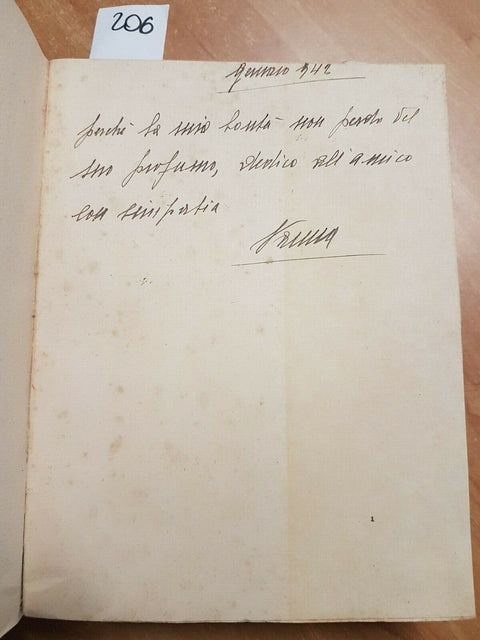 206
Gennaio 942
perché la sua bontà non perda del
suo profumo, dedico all'amico
con simpatia
1